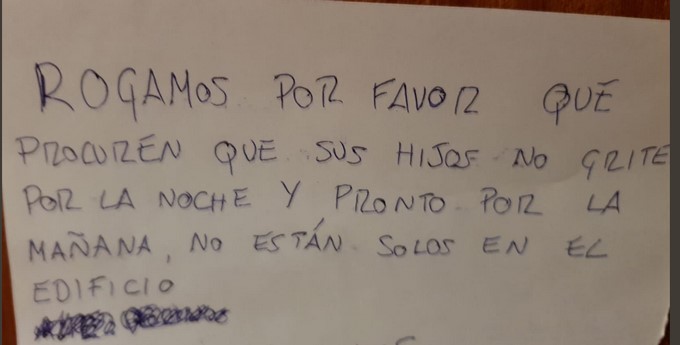 ROGAMOS POR FAVOR QUÉ
PROCUREN QUE SUS HIJOS NO GRITE
POR LA NOCHE Y PRONTO POR LA
MAÑANA, NO ESTÁN SOLOS EN EL
EDIFICIO